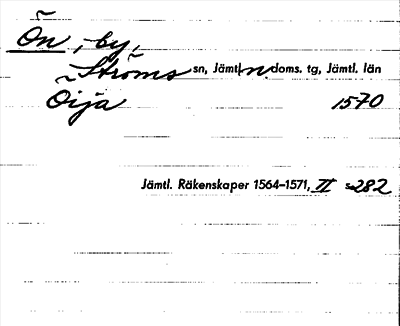 Ön, by,
Ströms sn, Jämtl. n doms. tg, Jämtl. län
Öija 1570
Jämtl. Räkenskaper 1564–1571, II s. 282